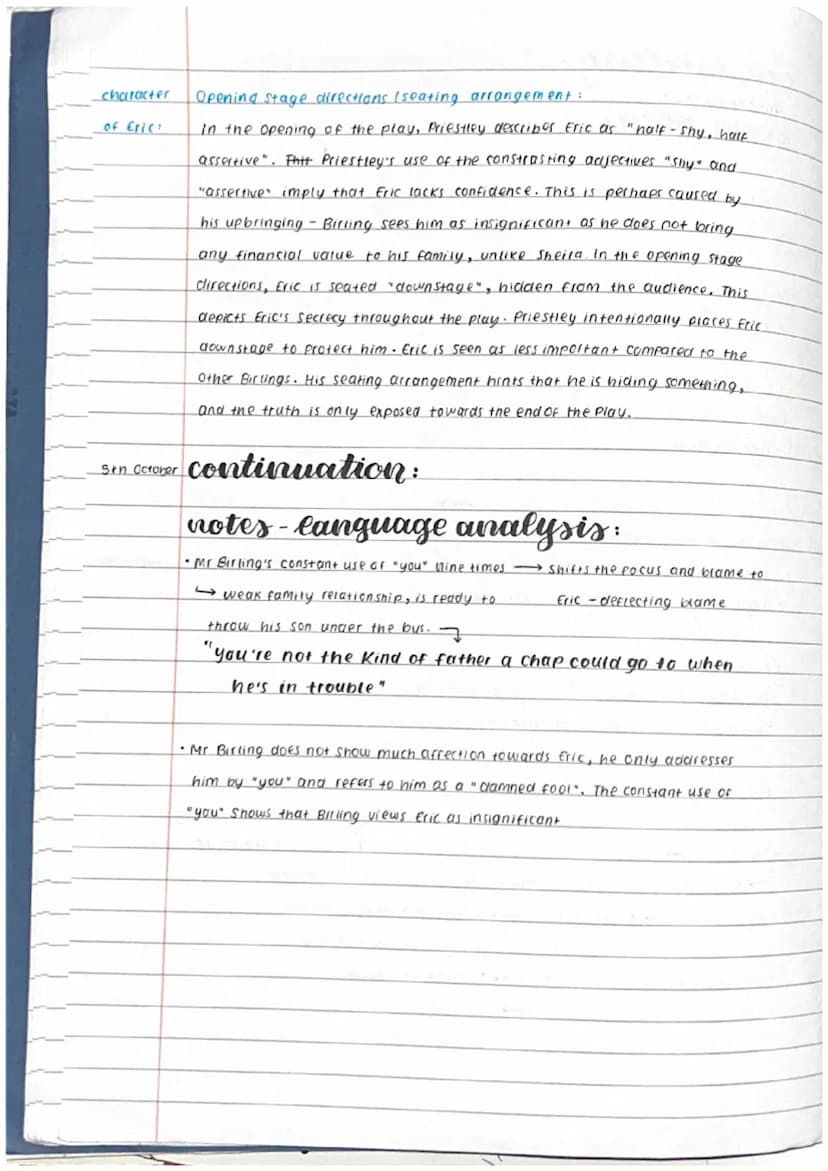 character Opening stage directions / seating arrangement :
of Eric: In the opening of the play, Priestley describes Eric as "half-shy, half
assertive". Priestley's use of the constrasting adjectives "shy" and
"assertive" imply that Eric lacks confidence. This is perhaps caused by
his upbringing - Birling sees him as insignificant as he does not bring
any financial value to his family, unlike Sheila. In the opening stage
directions, Eric is seated "downstage", hidden from the audience. This
depicts Eric's secrecy throughout the play. Priestley intentionally places Eric
downstage to protect him. Eric is seen as less important compared to the
Other Birlings. His seating arrangement hints that he is hiding something,
and the truth is only exposed towards the end of the Play.
5th October continuation:
notes - language analysis:
• Mr Birling's constant use of "you" nine times → shifts the focus and blame to
↳ weak family relationship, is ready to Eric - deflecting blame
throw his son under the bus.
"you're not the kind of father a chap could go to when
he's in trouble"
• Mr Birling does not show much affection towards Eric, he only addresses
him by "you" and refers to him as a "damned fool". The constant use of
"you" shows that Birling views Eric as insignificant